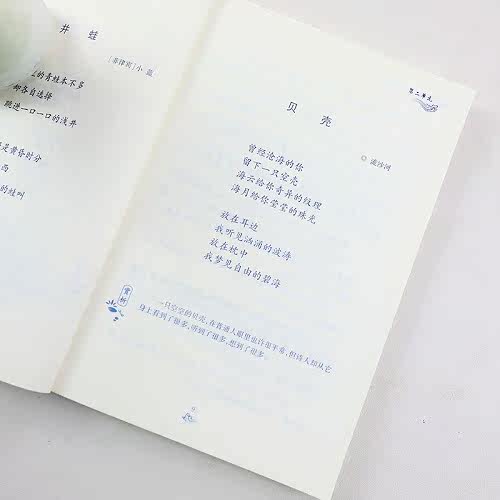 井 蛙
[菲律宾]小 蓝
的青蛙本不多
都各自选择
跳进一口一口的浅井
是黄昏时分
西
的蛙叫
第二单元
贝 壳
◎ 流沙河
曾经沧海的你
留下一只空壳
海云给你奇异的纹理
海月给你莹莹的珠光
放在耳边
我听见汹涌的波涛
放在枕中
我梦见自由的碧海
赏析
一只空空的贝壳,在普通人眼里也许很平常,但诗人却从它
身上看到了很多,听到了很多,想到了很多。